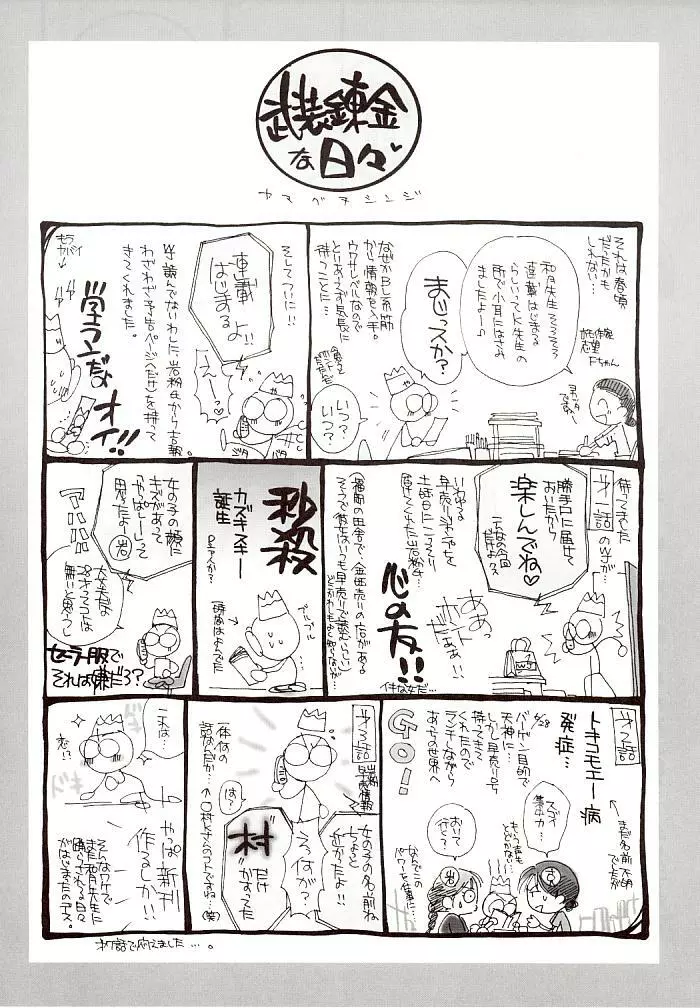 武装錬金
な日々
ヤマベキシンジ
それは春頃
だったかも
しれない…
和月先生そろそろ
連載はじまる
らしいってK先生の
所で小耳にはさみ
ましたよーっ
まじっスか?
なぜかBL系筋
から情報を入手。
ウワサレベルなので
とりあえず気長に
待つことに…
いつ?
いつ?
そしてついに!!
連載
はじまる
よ!!
えーっ
WJ読んでないわたしに岩粉氏から吉報
わざわざ予告ページ(だけ)を持って
きてくれました。
学ランだよ
オイ!!
待ってました
才一話
のWJが…
勝手口に届けて
おいたから
楽しんでね♡
ああっ
ホントだぁぁ!!
いわゆる
早売りジャンプを
土曜日にこっそり
届けてくれた岩粉氏
心の友!!
イキな女だ…
秒殺
カズキスキー
誕生
プルプル
女の子の顔に
キズがあって
やっぱしーって
思ったよー
岩
アハハ
大丈夫だよ
セーラー服で
それは嫌だろ?
才2話
トキコモエー病
発症…
まだ名前不明
でしたが
6/28
バーゲン目的で
天神に…
しかし早売り号
持ってきて
くれたので
ランチしながら
あっちの世界へ
GO!
スゴイ
集中力…
おいて
行くで?
なんでこの
パワーを仕事に…
才3話
早売情報
女の子の名前ね
ちょっと
近かったよ!!
え、何が?
村
だけ
かすってた
は?
一体何の
話なんだか…
一本は…
やっぱ新刊
作るしか!!
そんなワケで
また和月先生に
踊らされる日々
がはじまったのデス。
才7話で吠えました…。